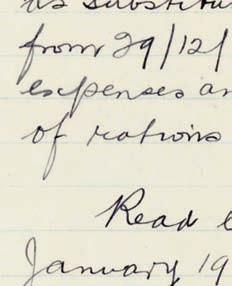 as substitu
from 29/12/
expenses an
of rations
Read
January 19